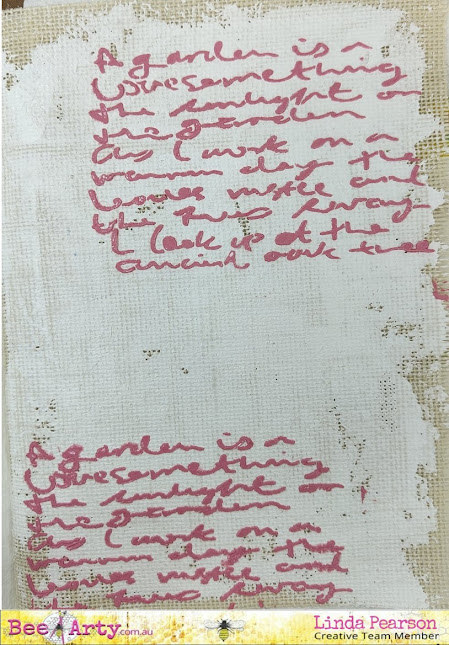 A garden is a
Lovesomething
the sunlight on
the garden
As I work on a
warm day the
leaves rustle and
the trees sway
I Look up at the
ancient oak tree
A garden is a
Lovesomething
the sunlight on
the garden
As I work on a
warm day the
leaves rustle and
the trees sway
BeeArty.com.au
Linda Pearson
Creative Team Member